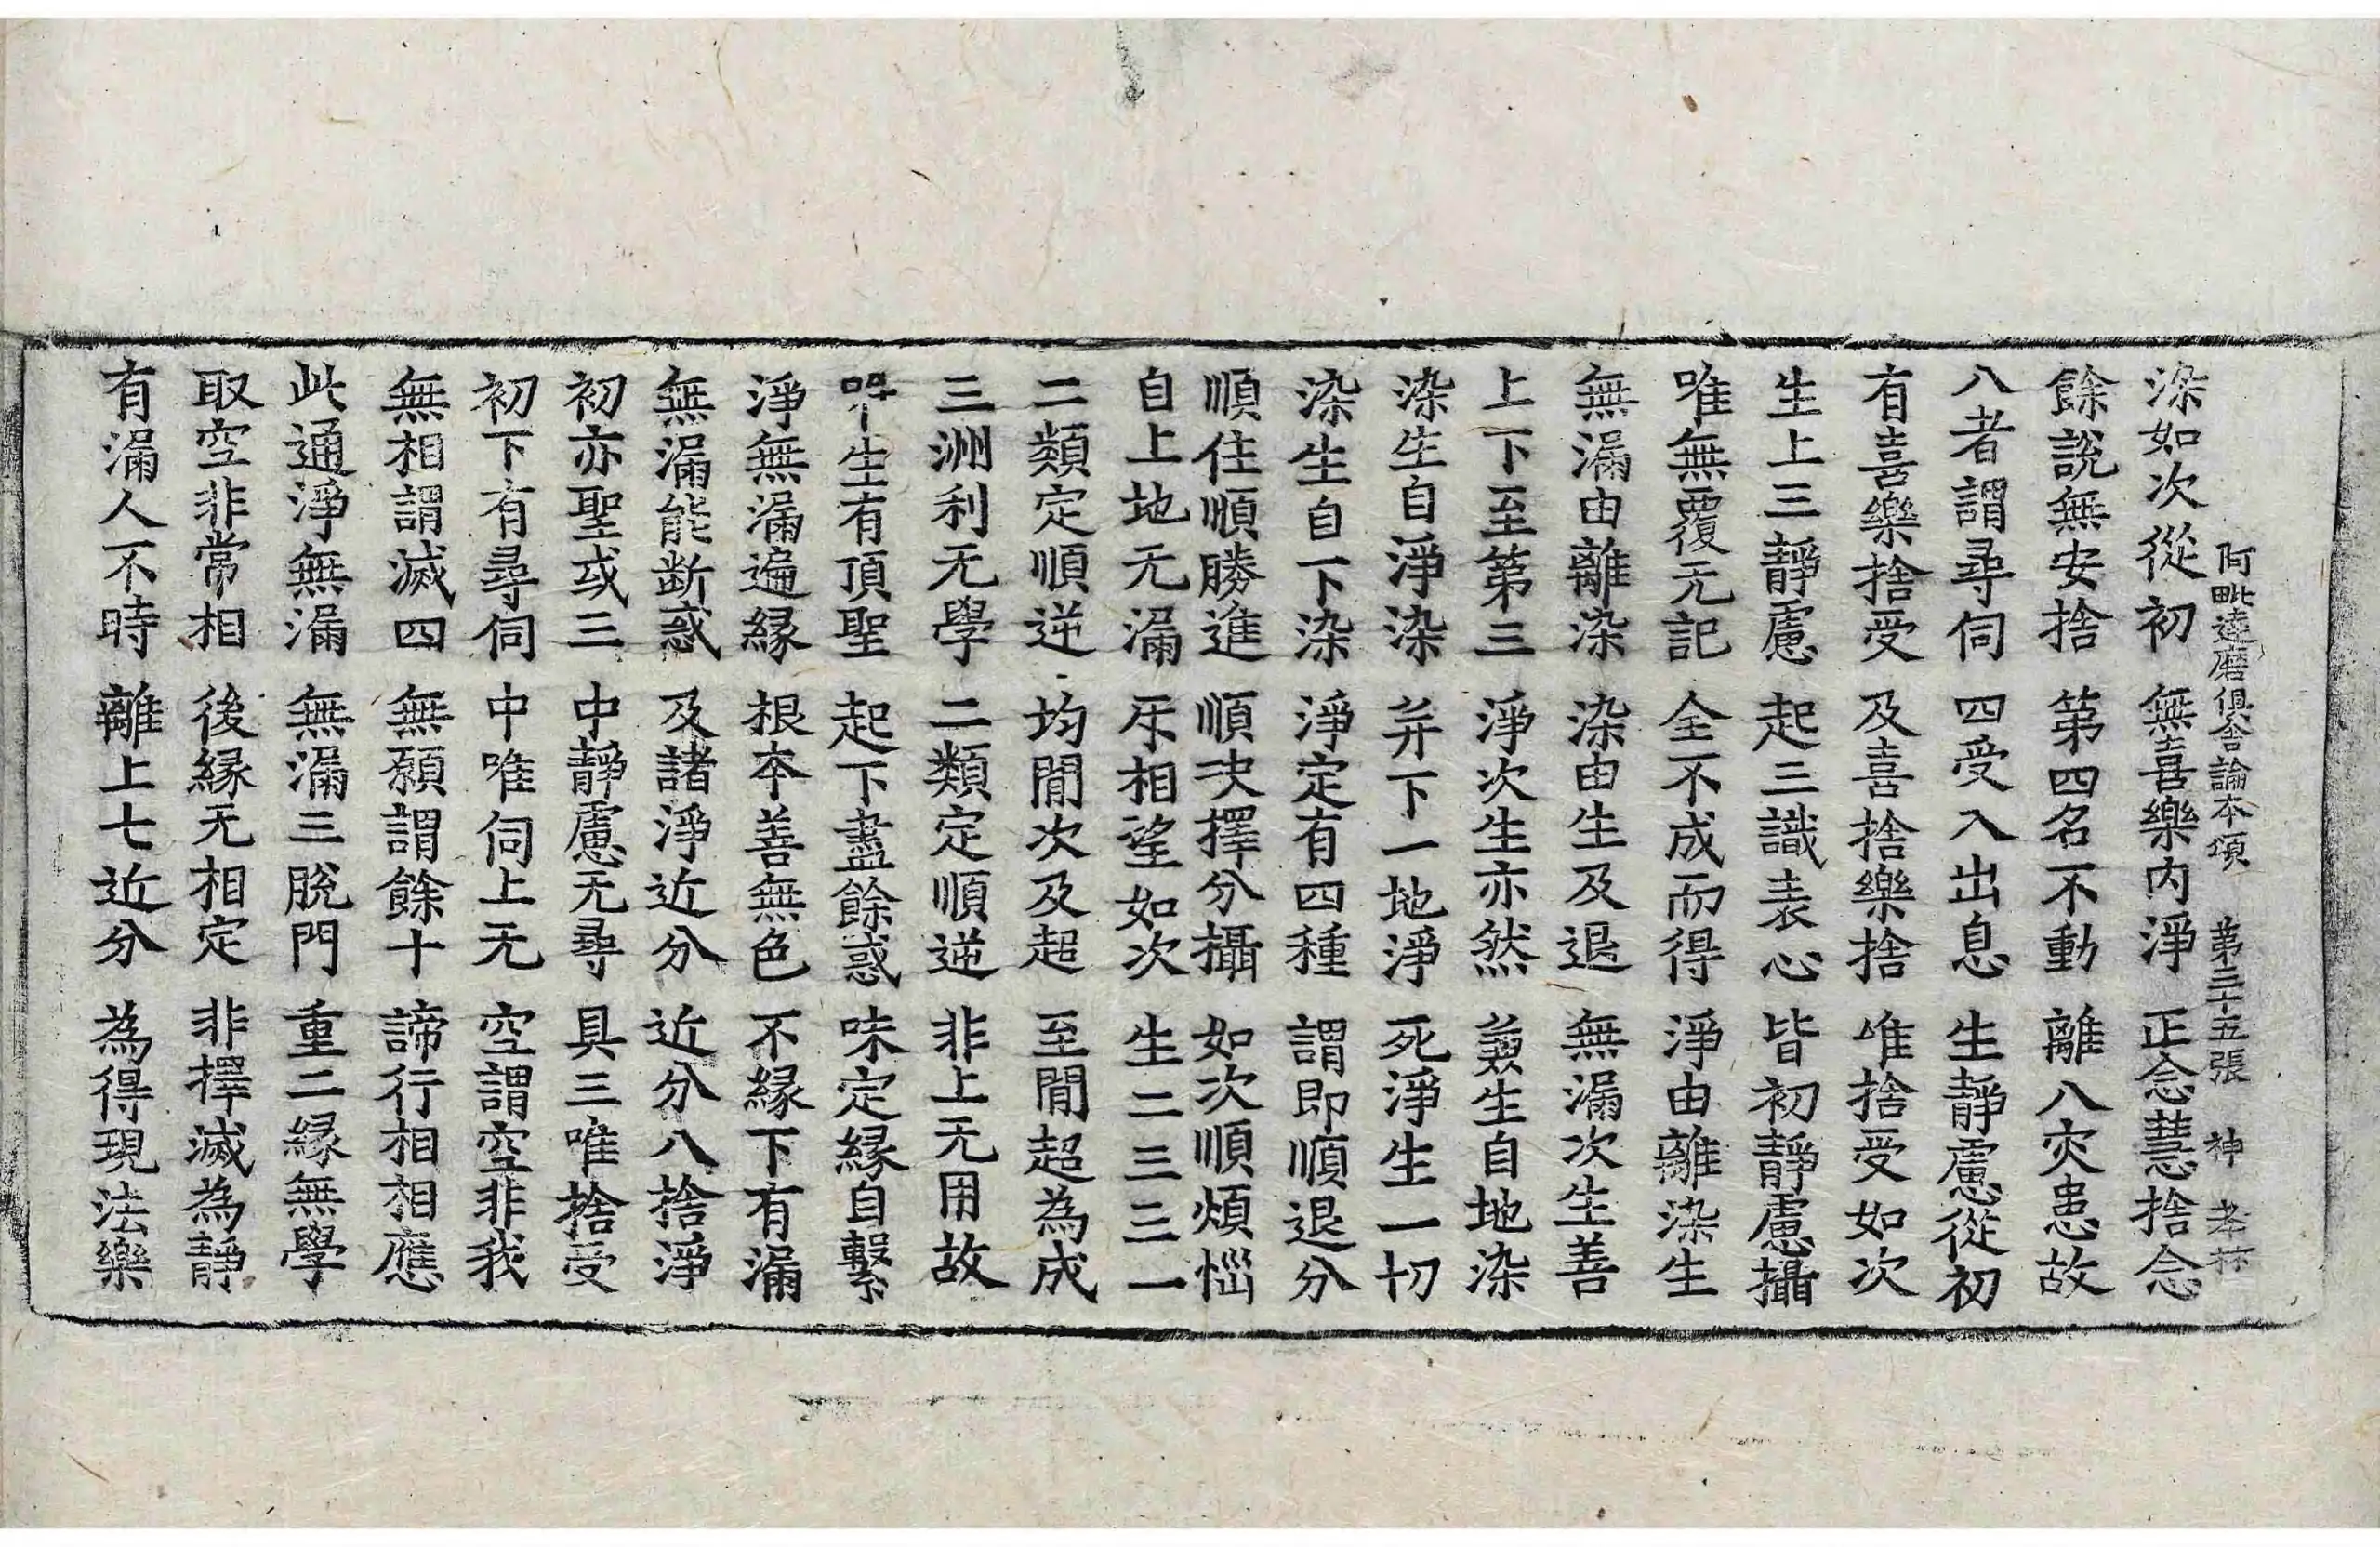 阿毗達磨俱舍論本頌 第三十五張 神 孝林
染如次從初 無喜樂內淨 正念慧捨念
餘說無安捨 第四名不動 離八灾患故
八者謂尋伺 四受入出息 生靜慮從初
有喜樂捨受 及喜捨樂捨 唯捨受如次
生上三靜慮 起三識表心 皆初靜慮攝
唯無覆无記 全不成而得 淨由離染生
無漏由離染 染由生及退 無漏次生善
上下至第三 淨次生亦然 兼生自地染
染生自淨染 并下一地淨 死淨生一切
染生自下染 淨定有四種 謂即順退分
順住順勝進 順決擇分攝 如次順煩惱
自上地无漏 㡿相望如次 生二三三一
二類定順逆 均間次及超 至間超為成
三洲利无學 二類定順逆 非上无用故
生有頂聖 起下盡餘惑 味定緣自繫
淨無漏遍緣 根本善無色 不緣下有漏
無漏能斷惑 及諸淨近分 近分八捨淨
初亦聖或三 中靜慮无尋 具三唯捨受
初下有尋伺 中唯伺上无 空謂空非我
無相謂滅四 無願謂餘十 諦行相相應
此通淨無漏 無漏三脫門 重二緣無學
取空非常相 後緣无相定 非擇滅為靜
有漏人不時 離上七近分 為得現法樂